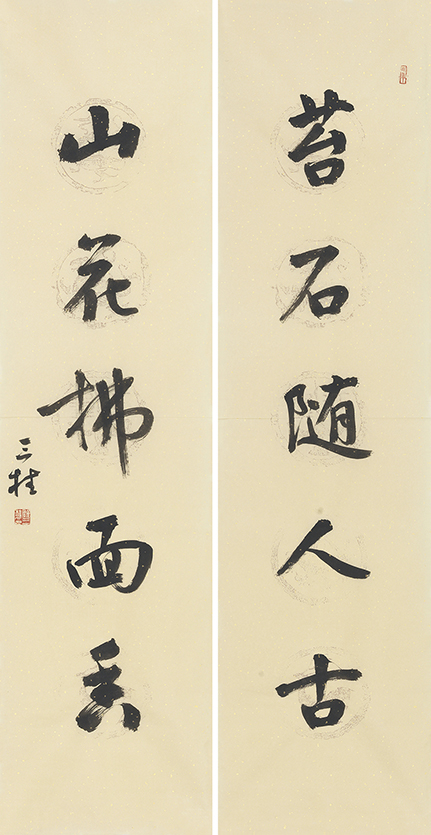 苔石随人古
山花拂面香
三桂